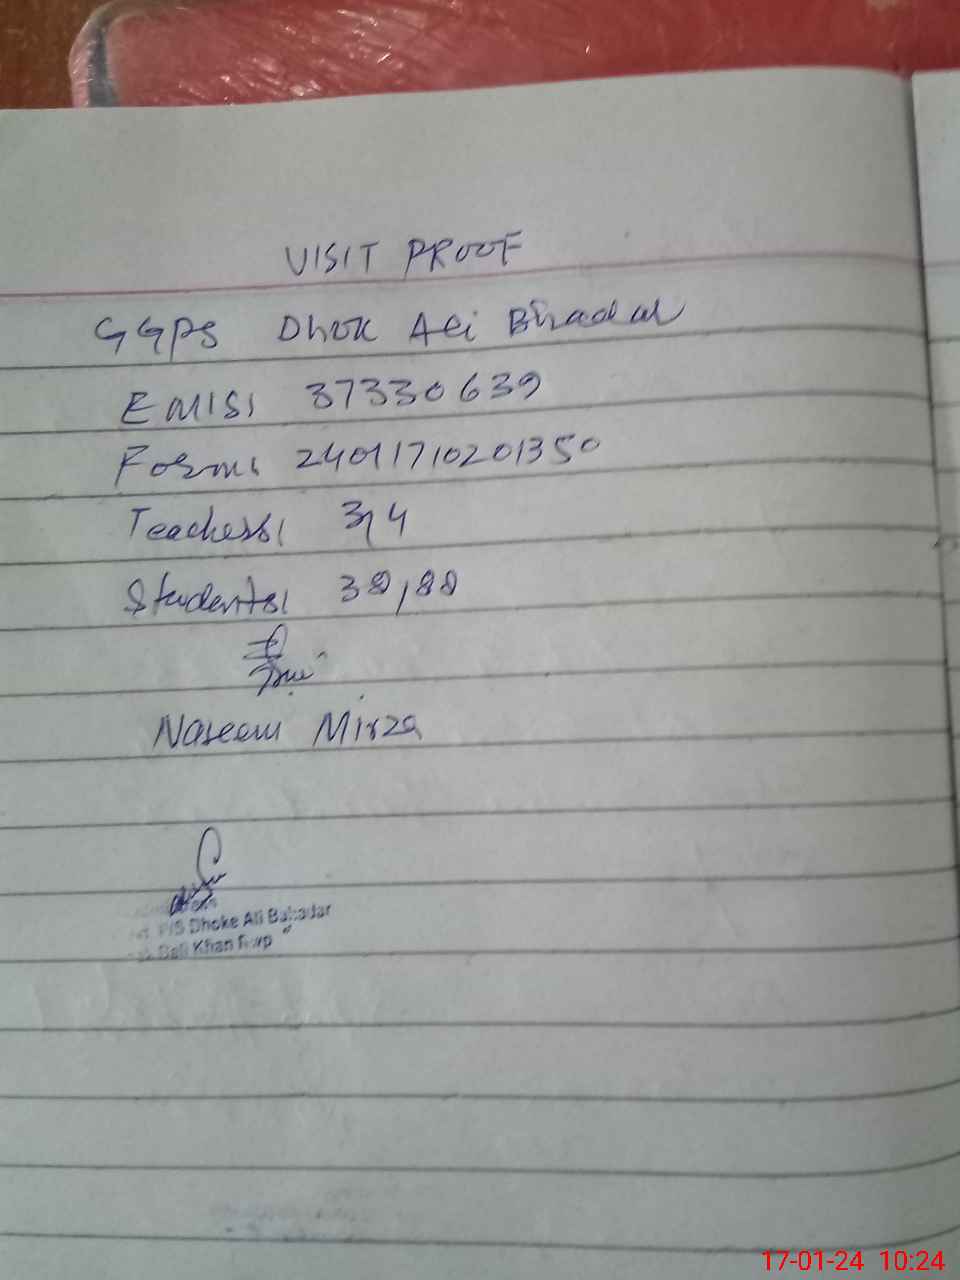 VISIT PROOF
GGPS Dhok Ali Bhadar
EMIS: 37330639
Form: 24011710201350
Teachers: 3,4
Students: 38,88
Naseem Mirza
P/S Dhoke Ali Bahadar
Bali Khan Rwp
17-01-24 10:24